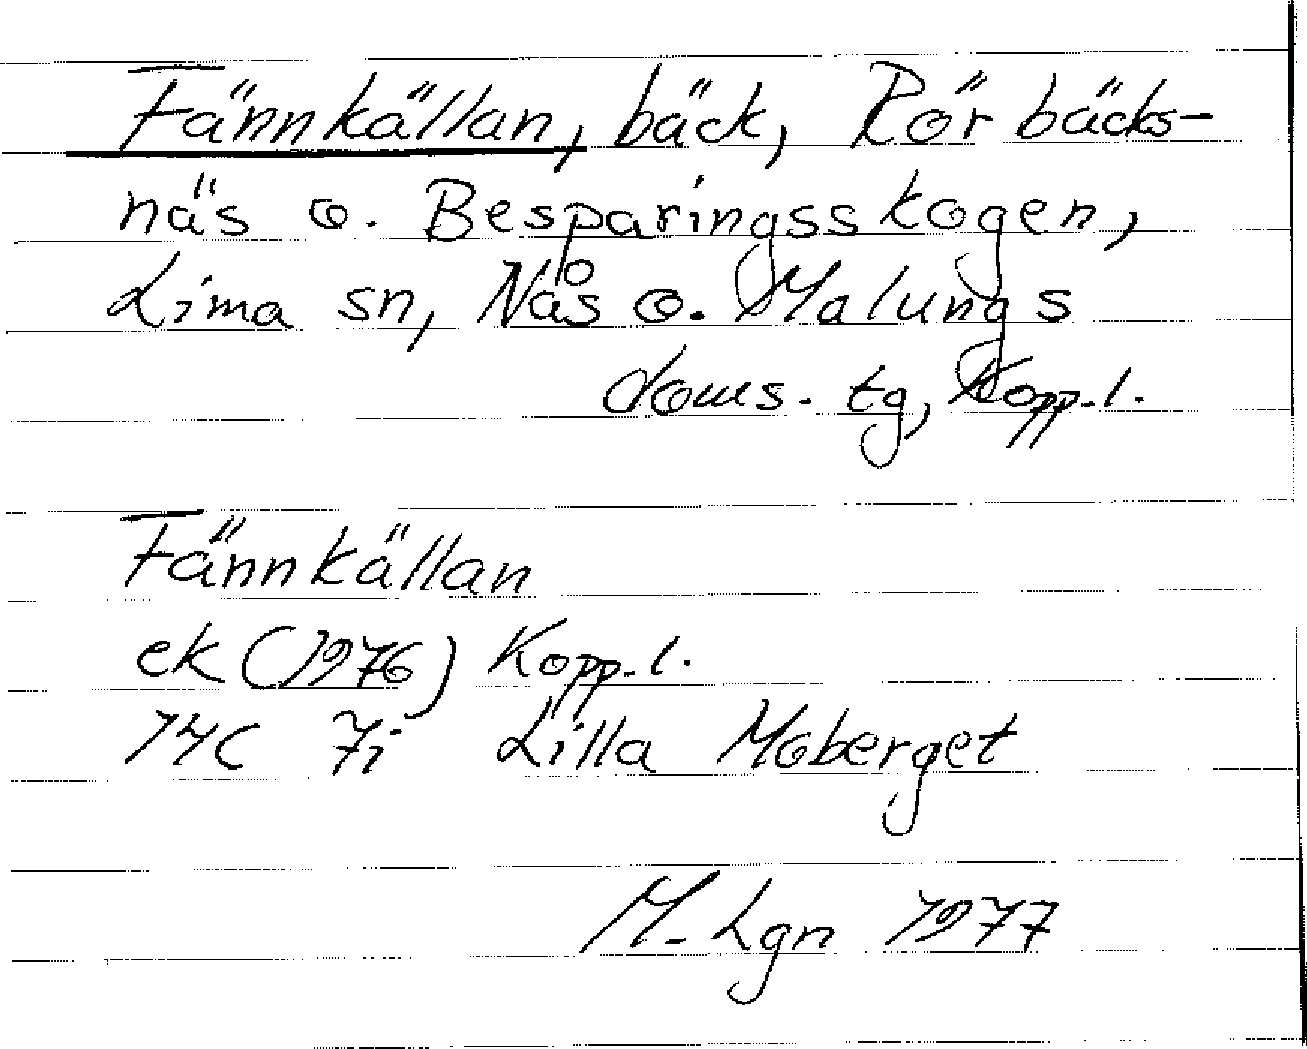 Fännkällan, bäck, Rörbäcks-
näs o. Besparingsskogen,
Lima sn, Nås o. Malungs
doms. tg, Kopp.l.
Fännkällan
ek (1976) Kopp.l.
14C 7i Lilla Moberget
M. Lgn 1977